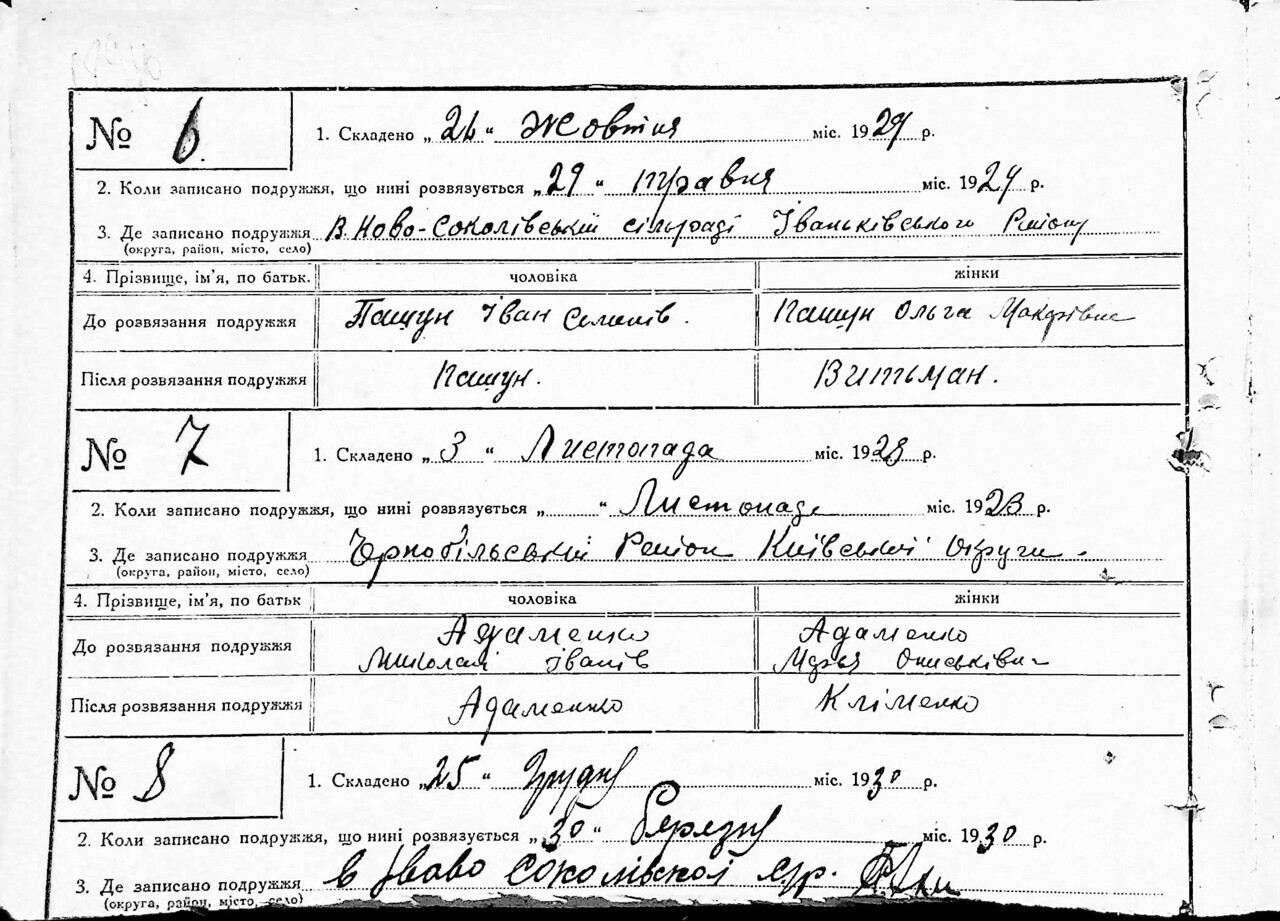 № 6
1. Складено „ 26 “ Жовтня міс. 1929 р.
2. Коли записано подружжя, що нині розвязується „ 29 “ травня міс. 1929 р.
3. Де записано подружжя В Ново-Соколівській сільраді Іваньківського Району
(округа, район, місто, село)
4. Прізвище, ім'я, по батьк. чоловіка жінки
До розвязання подружжя Пащун Іван Семенів. Пащун Ольга Макарівна
Після розвязання подружжя Пащун. Витьман.
№ 7
1. Складено „ 3 “ Листопада міс. 1928 р.
2. Коли записано подружжя, що нині розвязується „ “ Листопада міс. 1928 р.
3. Де записано подружжя Чорнобільській Район Київської Округи.
(округа, район, місто, село)
4. Прізвище, ім'я, по батьк чоловіка жінки
До розвязання подружжя Адаменко Адаменко
Миколай Іванів Ониськівна
Після розвязання подружжя Адаменко Кліменко
№ 8
1. Складено „ 25 “ Грудня міс. 1930 р.
2. Коли записано подружжя, що нині розвязується „ 30 “ березня міс. 1930 р.
3. Де записано подружжя в Ново Соколівской
(округа, район, місто, село)